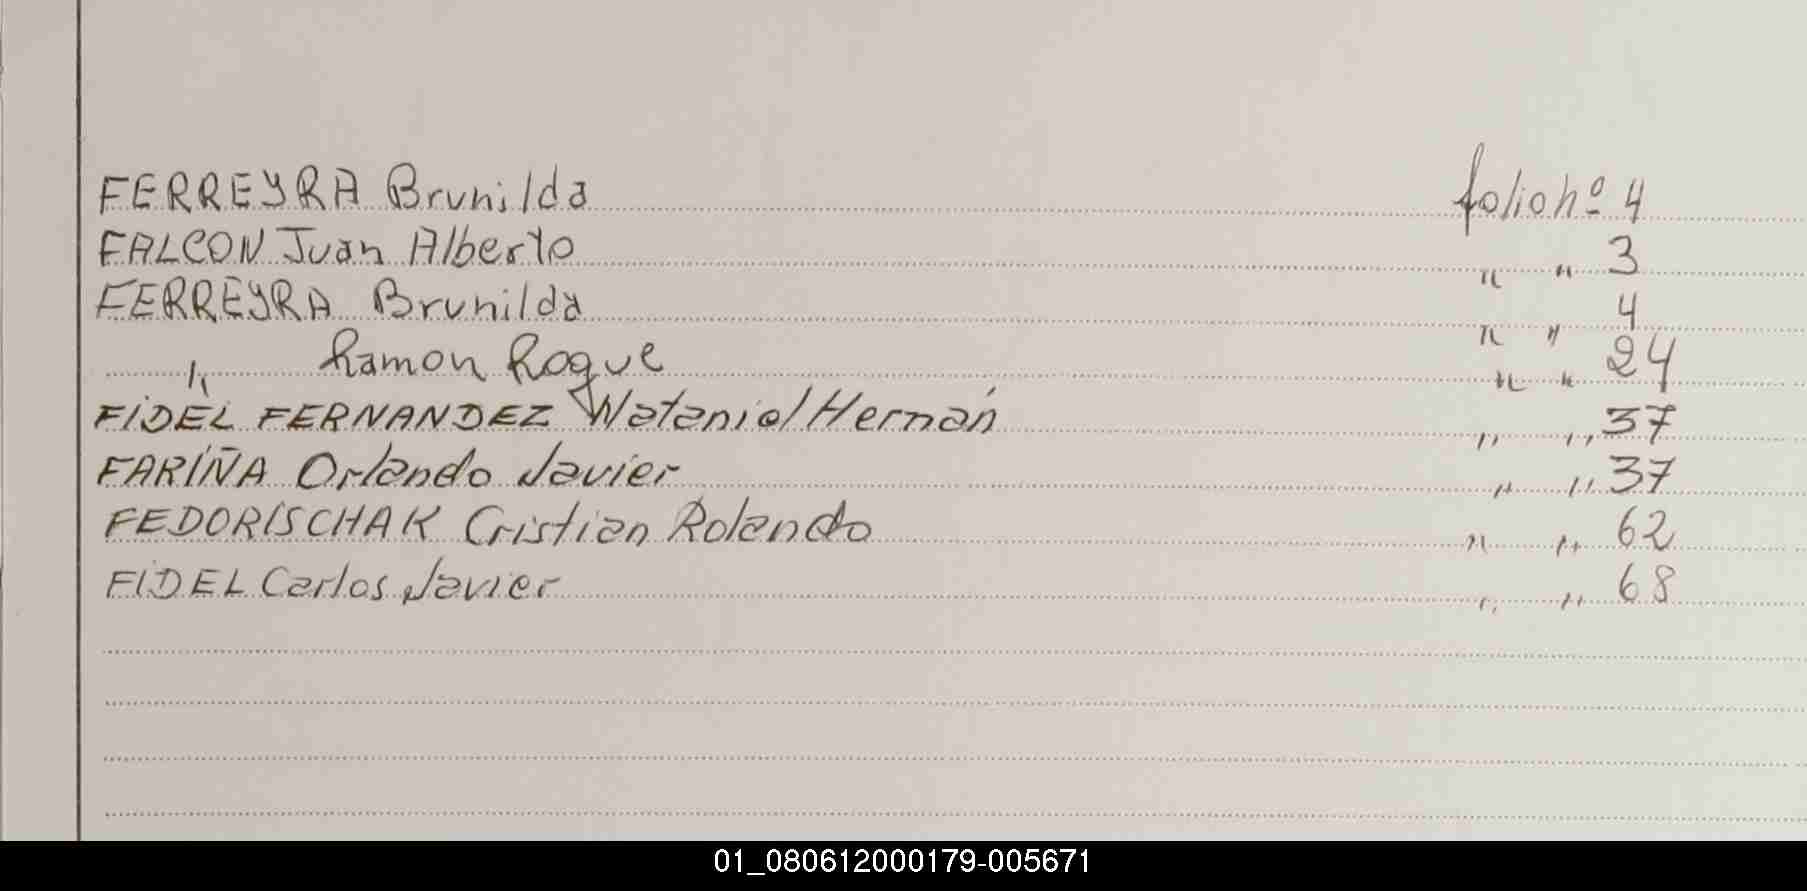 FERREYRA Brunilda folio nº 4
FALCON Juan Alberto " " 3
FERREYRA Brunilda " " 4
" Ramon Roque " " 24
FIDEL FERNANDEZ Nataniel Hernán " " 37
FARIÑA Orlando Javier " " 37
FEDORISCHAK Cristian Rolando " " 62
FIDEL Carlos Javier " " 68
01_080612000179-005671